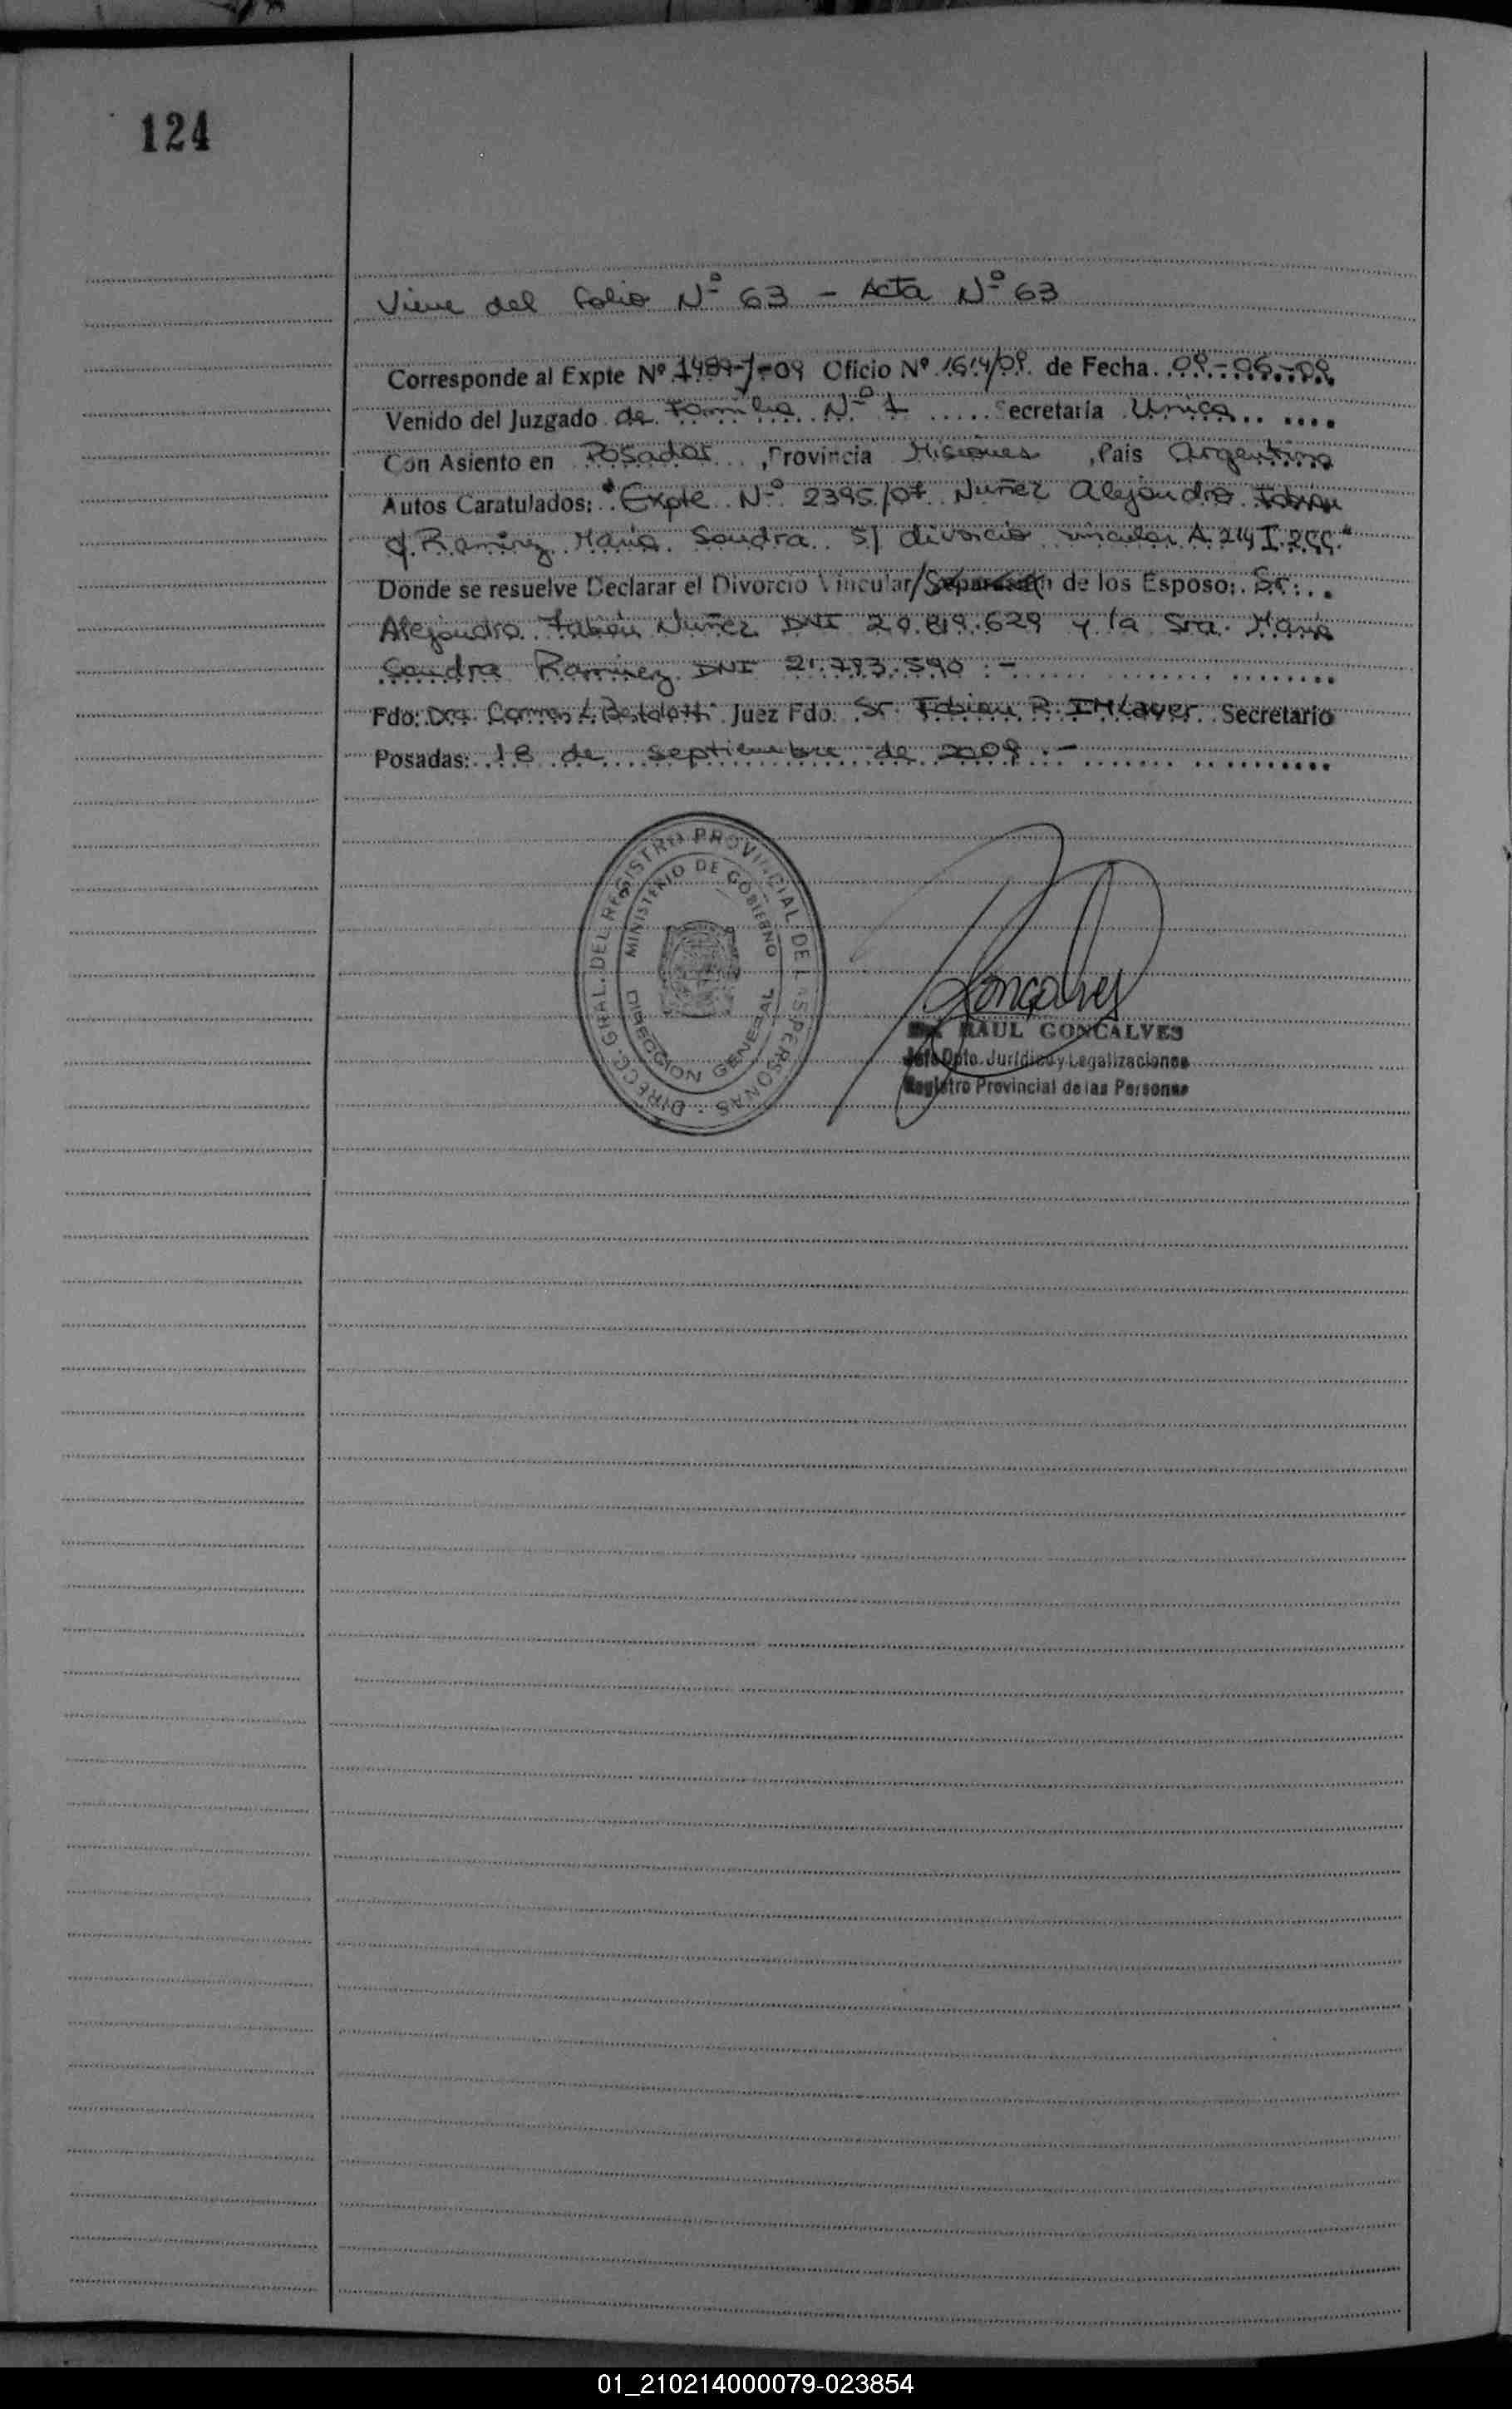 124
Viene del folio Nº 63 - Acta Nº 63
Corresponde al Expte Nº Oficio Nº 1614/09 de Fecha 09-06-09
Venido del Juzgado de Familia Nº 1 Secretaria Unica
Con Asiento en Posadas, Provincia Misiones, País Argentina
Autos Caratulados: "Expte Nº 2395/07 Nuñez Alejandro Fabian
c/ Ramirez Maria Sandra s/ divorcio vincular A. 214 I. 2CC."
Donde se resuelve Declarar el Divorcio Vincular/Separación de los Esposo: Sr.
Alejandro Fabián Nuñez DNI 20.819.629 y la Sra. Maria
Sandra Ramirez DNI 21.783.590.-
Fdo: Dra. Juez Fdo. Sr. Fabian R. Secretario
Posadas: 18 de septiembre de 2009.-
DIRECC. GRAL. DEL REGISTRO PROVINCIAL DE LAS PERSONAS
MINISTERIO DE GOBIERNO
DIRECCION GENERAL
Goncalves
RAUL GONCALVES
Jefe Dpto. Jurídico y Legalizaciones
Registro Provincial de las Personas
01_210214000079-023854